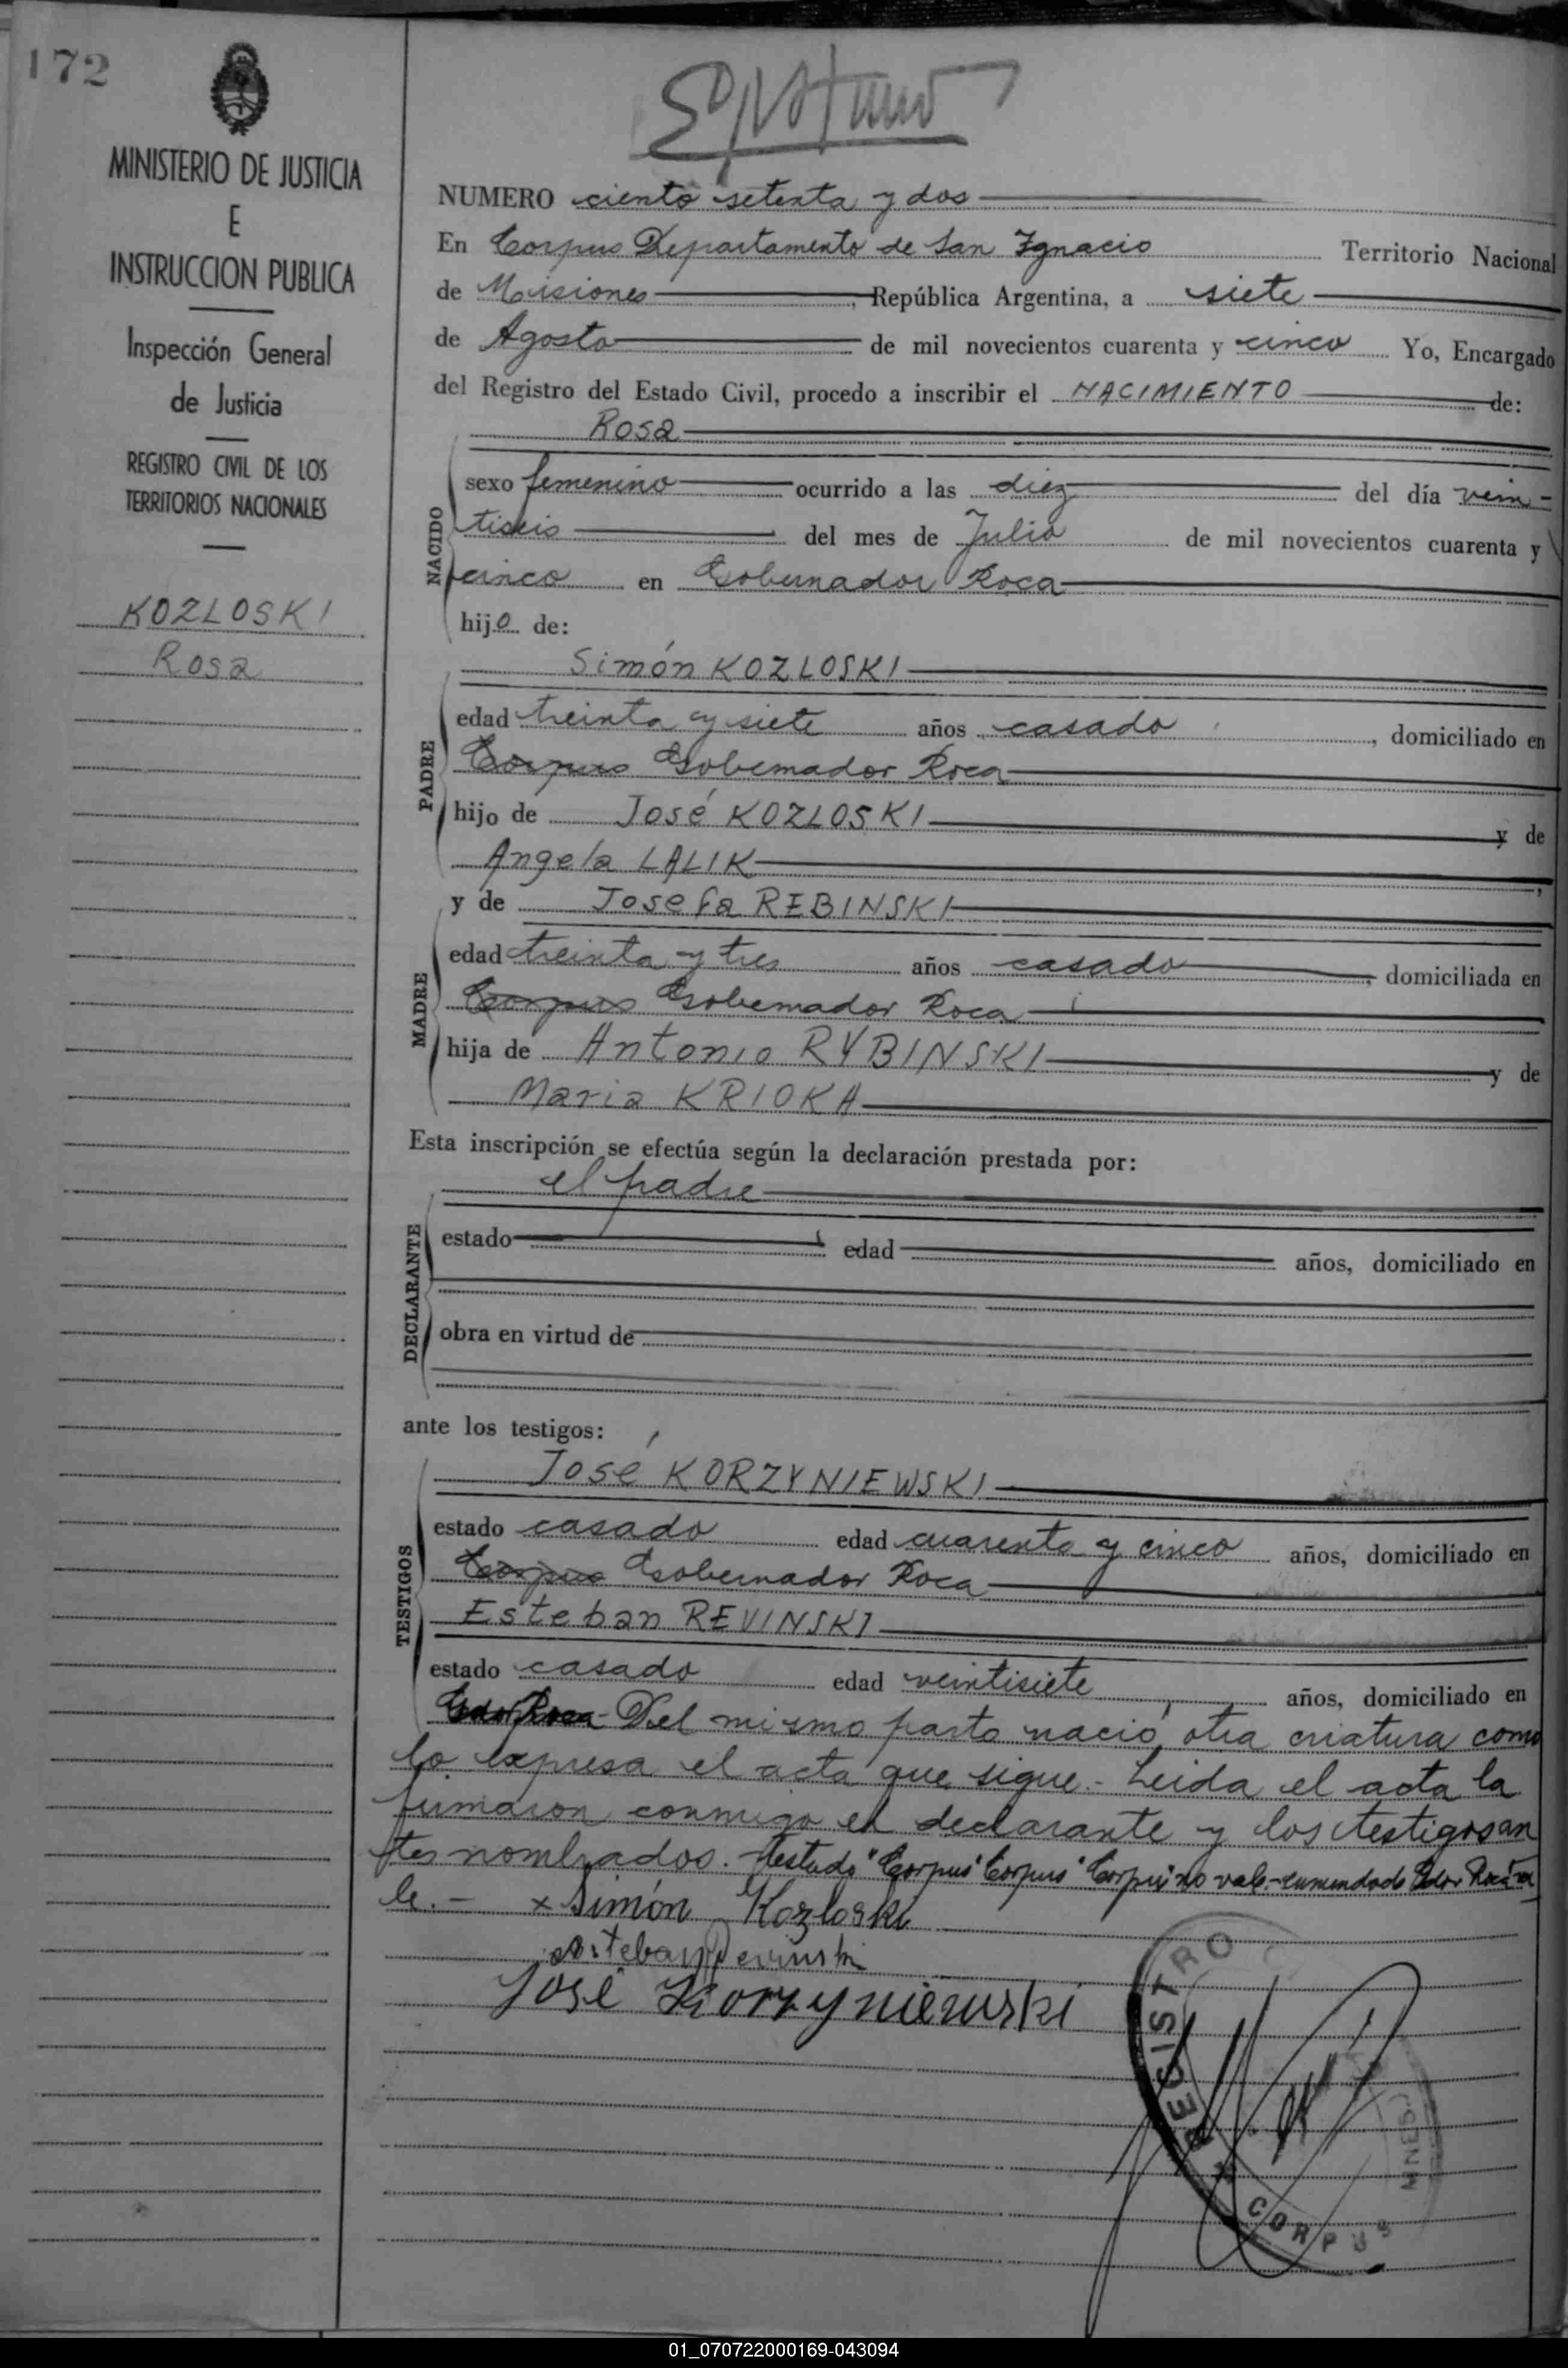 172
MINISTERIO DE JUSTICIA
E
INSTRUCCION PUBLICA
Inspección General
de Justicia
REGISTRO CIVIL DE LOS
TERRITORIOS NACIONALES
KOZLOSKI
Rosa
NUMERO ciento setenta y dos
En Corpus Departamento de San Ignacio Territorio Nacional
de Misiones, República Argentina, a siete
de Agosto de mil novecientos cuarenta y cinco Yo, Encargado
del Registro del Estado Civil, procedo a inscribir el NACIMIENTO de:
Rosa
NACIDO
sexo femenino ocurrido a las diez del día vein-
tiseis del mes de Julio de mil novecientos cuarenta y
cinco en Gobernador Roca
hijo de:
Simón KOZLOSKI
PADRE
edad treinta y siete años casado, domiciliado en
Corpus Gobernador Roca
hijo de José KOZLOSKI y de
Angela LALIK,
y de Josefa REBINSKI
MADRE
edad treinta y tres años casado, domiciliada en
Corpus Gobernador Roca
hija de Antonio RYBINSKI y de
Maria KRIOKA
Esta inscripción se efectúa según la declaración prestada por:
el padre
DECLARANTE
estado edad años, domiciliado en
obra en virtud de
ante los testigos:
José KORZYNIEWSKI
TESTIGOS
estado casado edad cuarenta y cinco años, domiciliado en
Corpus Gobernador Roca
Esteban REVINSKI
estado casado edad veintisiete años, domiciliado en
Gdor Roca - Del mismo parto nació otra criatura como
lo expresa el acta que sigue.- Leida el acta la
firmaron conmigo el declarante y los testigos an
tes nombrados. Testado "Corpus" Corpus" Corpus" no vale.-enmendado Gdor Roca" va
le.- x Simón Kozloski
Esteban Revinski
José Korzyniewski
REGISTRO
CORPUS
MNES
01_070722000169-043094